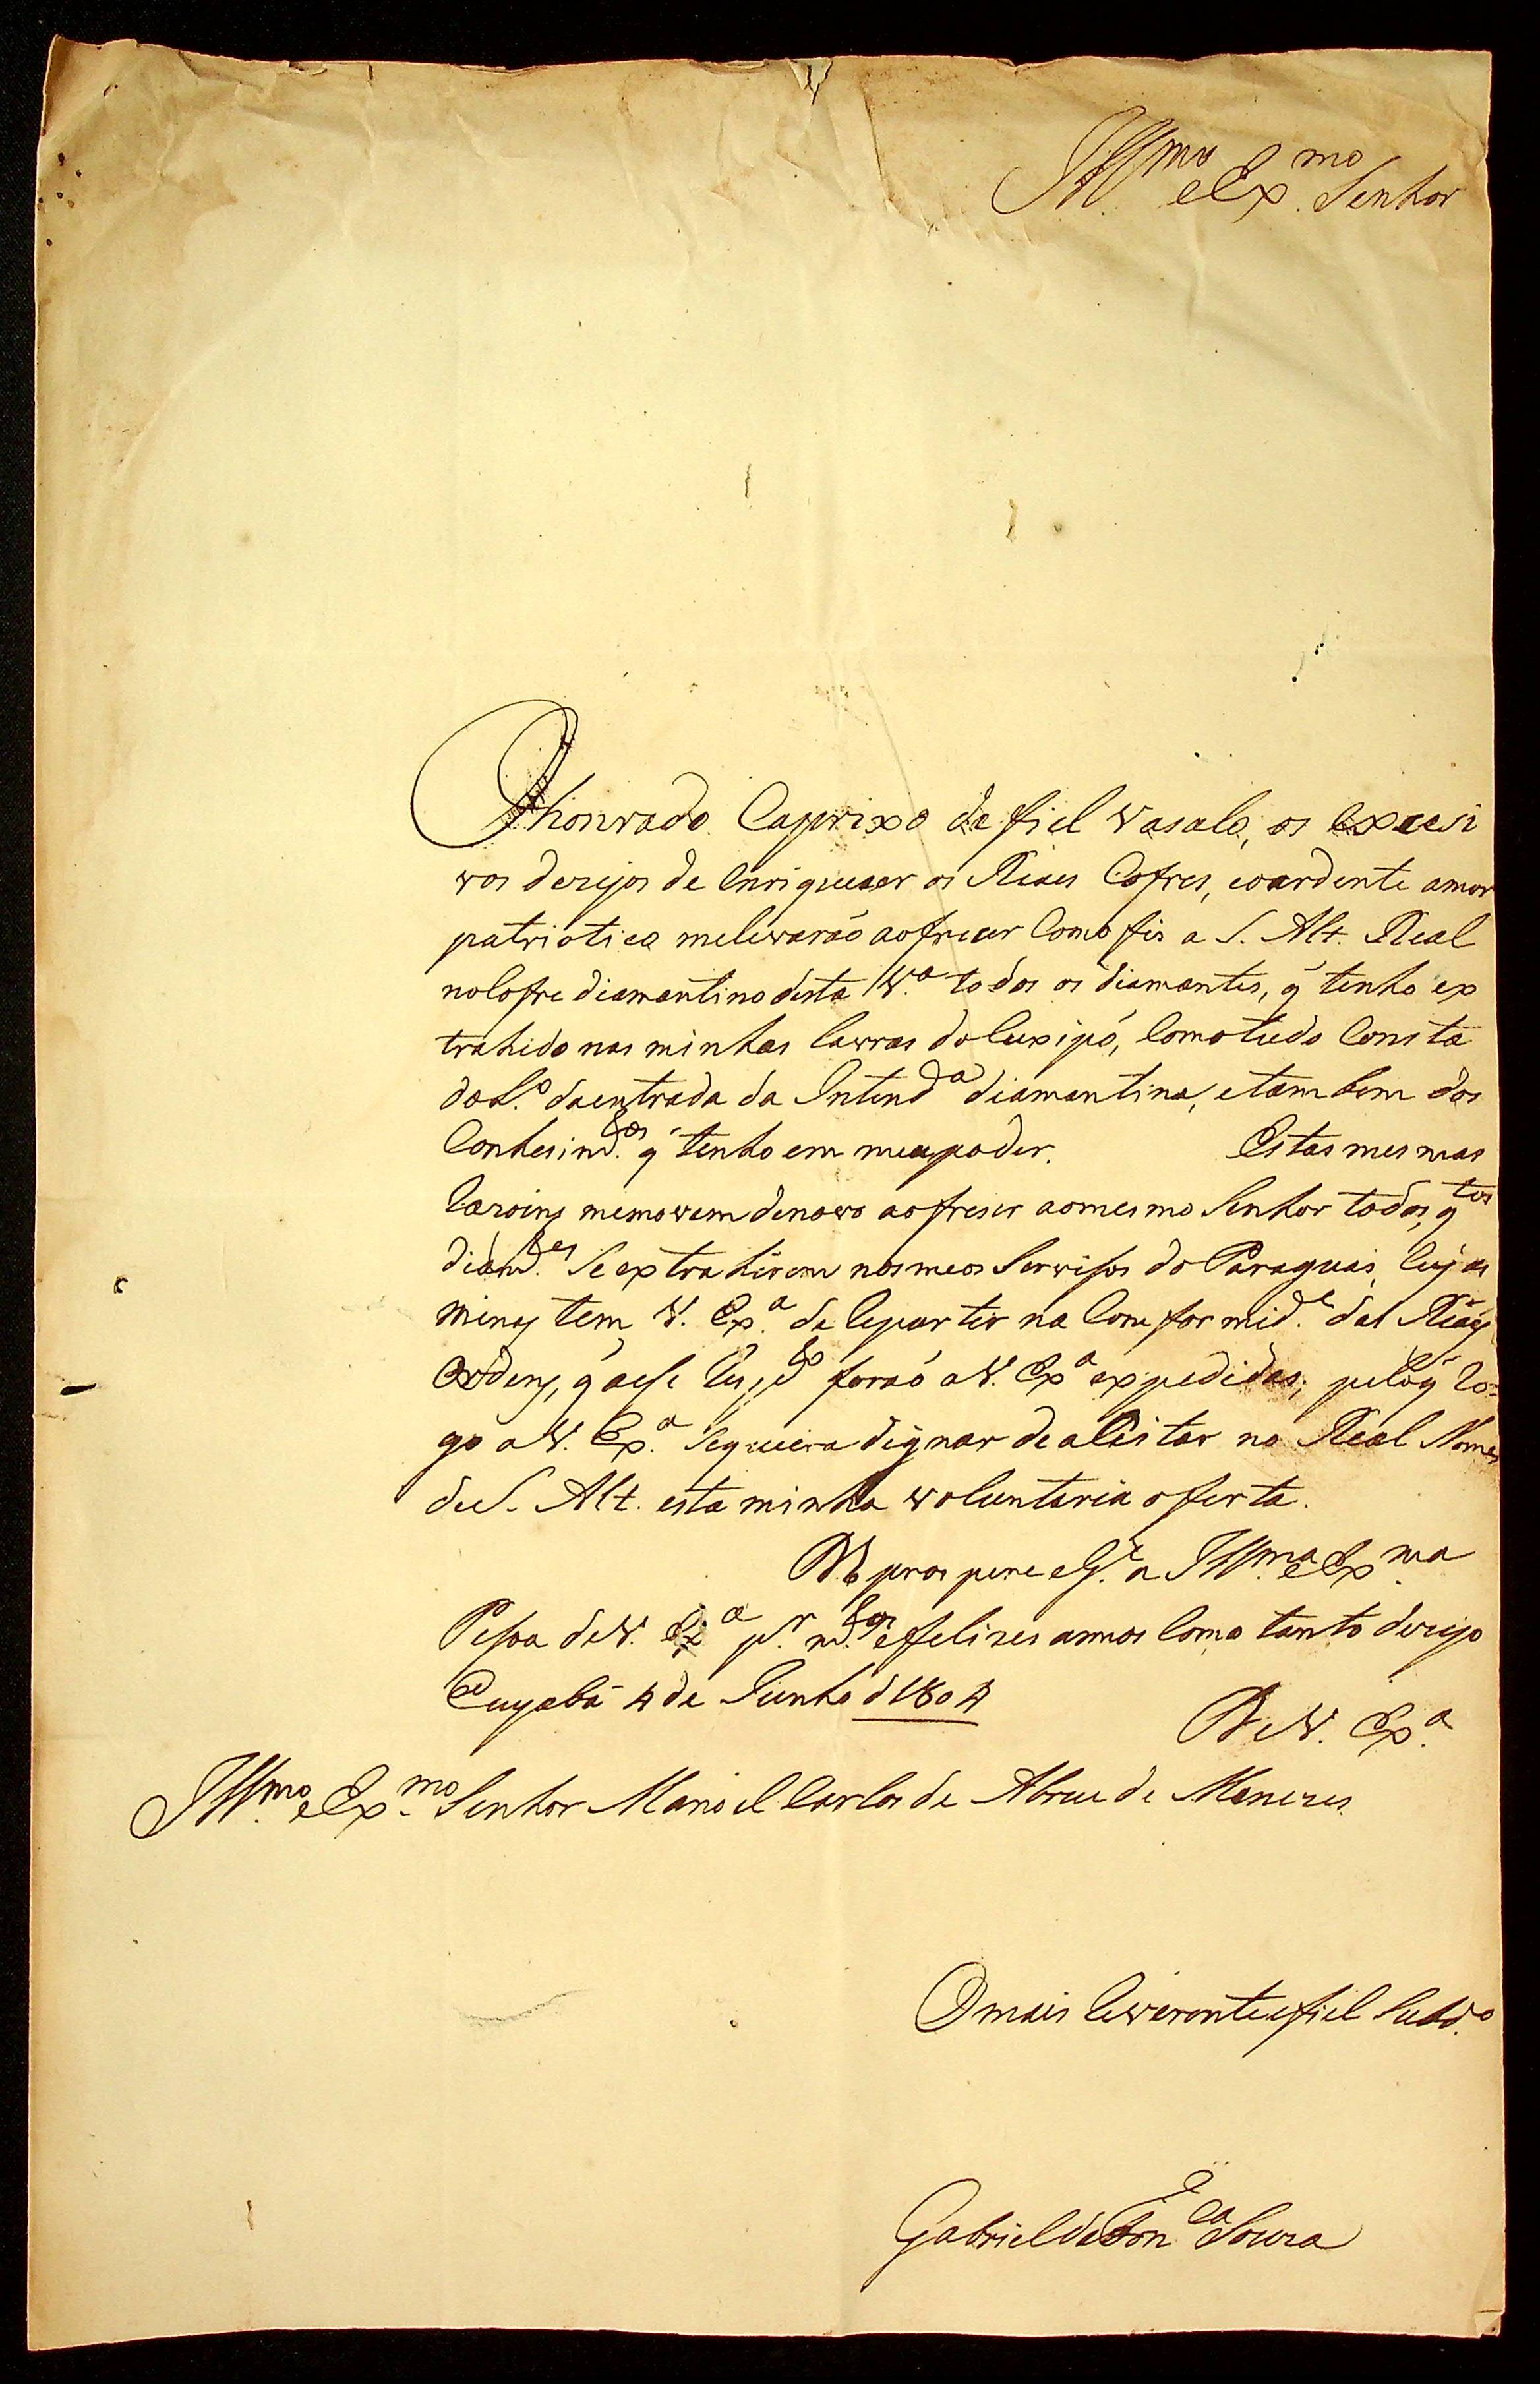 Ill.mo e Ex.mo Senhor
O honrado Caprixo de fiel Vasalo, os excesi
vos dezejos de enriquecer os Reaes Cofres, eoardente amor
patriotico melevaraõ aofrecer como fis a S. Alt. Real
noCofre diamantino desta V.a todos os diamantes, q̃ tenho ex
trahido nas minhas lavras doCuxipó, comotudo consta
doL.o daentrada da Intend.a diamantina, etambem dos
Conhesim.tos q̃ tenho em meupoder. Estas mesmas
razoins memovem denovo aofreser aomesmo Senhor todos, q.tos
diam.es se extrahirem nosmeos Servisos do Paraguai, cujas
Minas tem V. Ex.a de repartir na comformid.e das Reays
Ordens, q̃ aese resp.to foraõ aV. Ex.a expedidas; peloq̃ ro=
go aV. Ex.a sequeira dignar deaseitar no Real Nome
deS. Alt. esta minha voluntaria oferta.
D.s prospere eG.e a Ill.ma e Ex.ma
Pesoa deV. Ex.a p.r m.tos efelizes annos como tanto dezejo
Cuyabá 4 de Junho d 1804
DeV. Ex.a
Ill.mo e Ex.mo Senhor Manoel Carlos de Abreu de Menezes
Omais reverente efiel Subd.o
Gabriel da Fon.ca e Souza